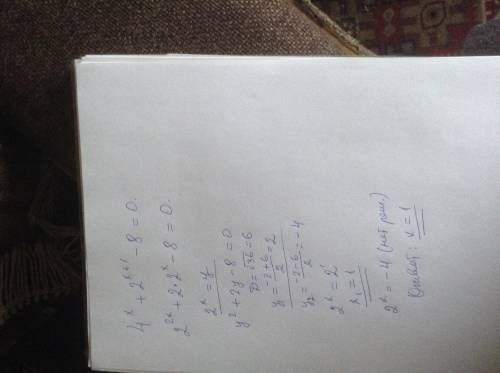 4^x + 2^{x+1} - 8 = 0.
2^{2x} + 2·2^x - 8 = 0.
2^x = y
y² + 2y - 8 = 0
D = √36 = 6
y₁ = (-2+6)/2 = 2
y₂ = (-2-6)/2 = -4
2^x = 2^1
x₁ = 1
2^x = -4 (нет реш.)
Ответ: x = 1